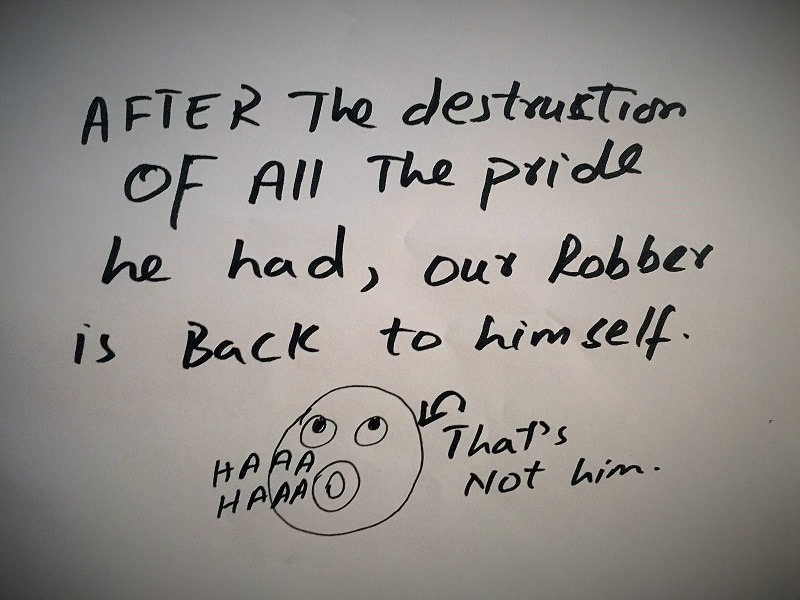 AFTER The destruktion
OF All The pride
he had, our Robber
is Back to himself.
HAAAA
HAAAA
That's
Not him.